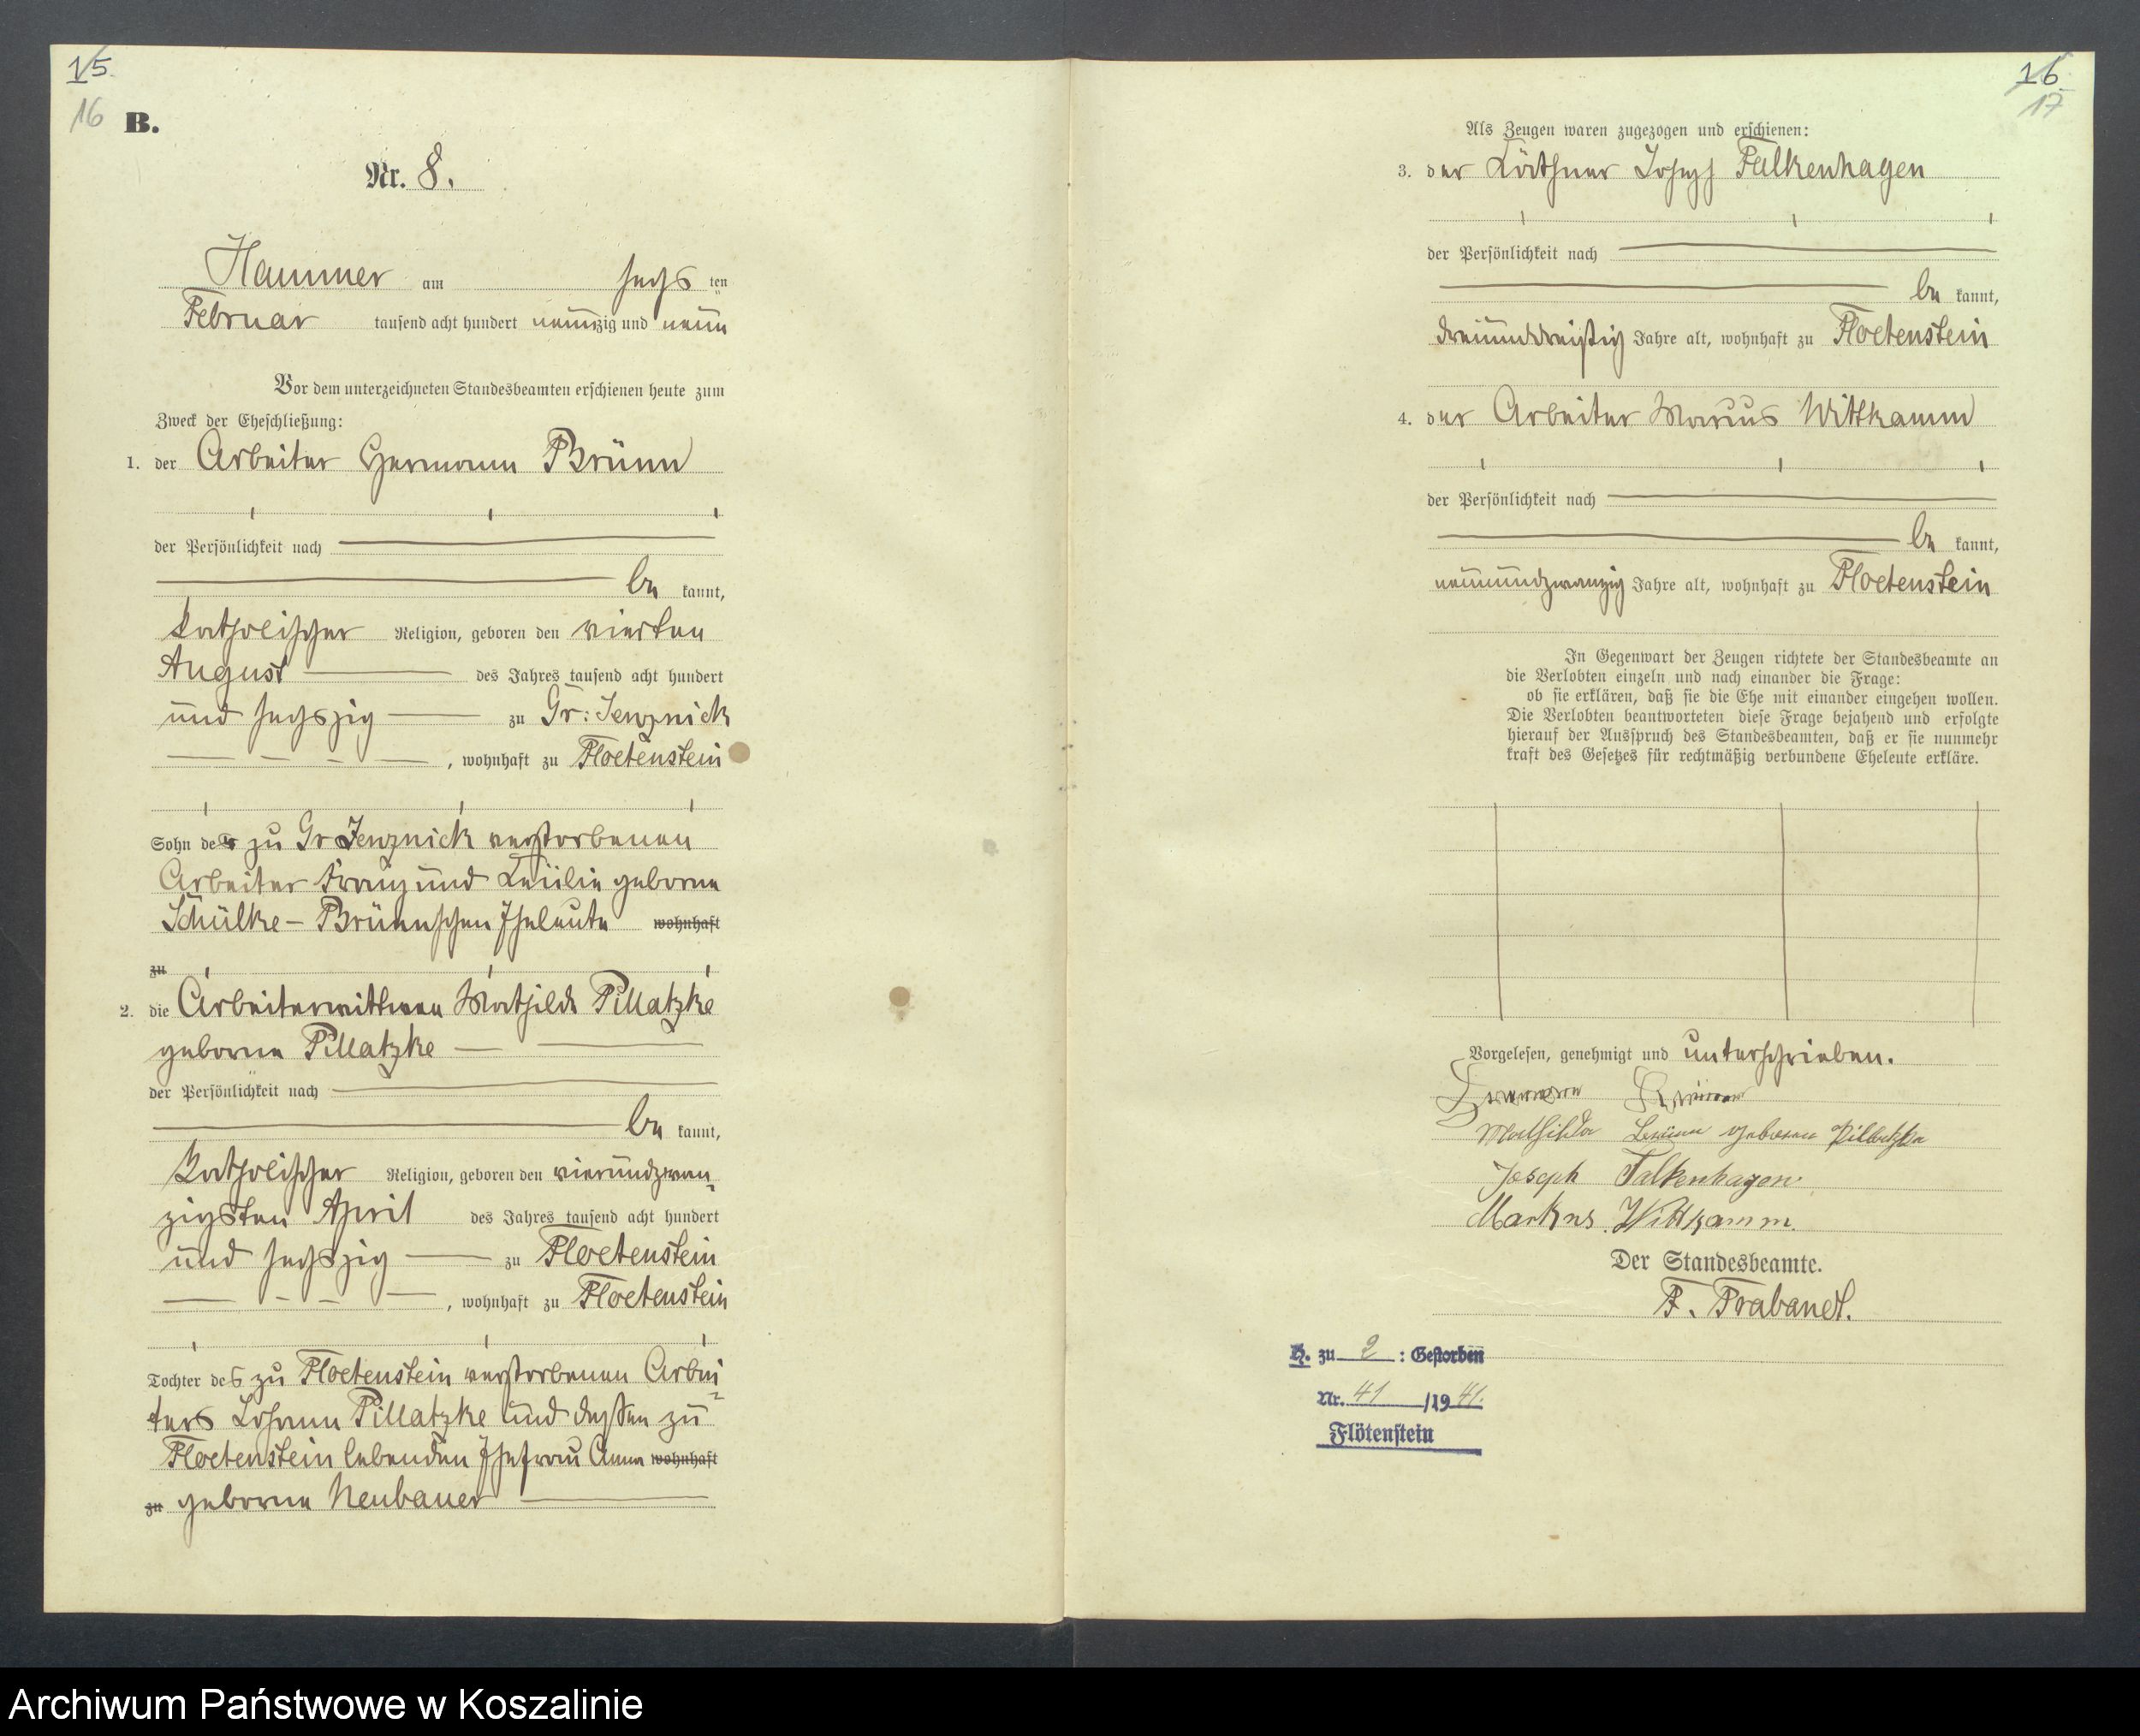 15.
16
B.
Nr. 8.
Hammer am sechs ten
Februar tausend acht hundert neunzig und neun
Vor dem unterzeichneten Standesbeamten erschienen heute zum
Zweck der Eheschließung:
1. der Arbeiter Hermann Brünn
der Persönlichkeit nach
be kannt,
katholischer Religion, geboren den vierten
August des Jahres tausend acht hundert
und sechszig zu Gr: Jenznick
, wohnhaft zu Floetenstein
Sohn der zu Gr Jenznick verstorbenen
Arbeiter Franz und geborne
Schülke - Brünnschen Eheleute wohnhaft
zu
2. die Arbeiterwittwe Mathilde Pillatzke
geborne Pillatzke
der Persönlichkeit nach
be kannt,
katholischer Religion, geboren den vierundzwan-
zigsten April des Jahres tausend acht hundert
und sechszig zu Floetenstein
, wohnhaft zu Floetenstein
Tochter des zu Floetenstein verstorbenen Arbei-
ters Johann Pillatzke und dessen zu
Floetenstein lebenden Ehefrau Anna wohnhaft
zu geborne Neubauer
16
17
Als Zeugen waren zugezogen und erschienen:
3. der Käthner Joseph Falkenhagen
der Persönlichkeit nach
be kannt,
dreiunddreißig Jahre alt, wohnhaft zu Floetenstein
4. der Arbeiter Marcus Wittkamm
der Persönlichkeit nach
be kannt,
neunundzwanzig Jahre alt, wohnhaft zu Floetenstein
In Gegenwart der Zeugen richtete der Standesbeamte an
die Verlobten einzeln und nach einander die Frage:
ob sie erklären, daß sie die Ehe mit einander eingehen wollen.
Die Verlobten beantworteten diese Frage bejahend und erfolgte
hierauf der Ausspruch des Standesbeamten, daß er sie nunmehr
kraft des Gesetzes für rechtmäßig verbundene Eheleute erkläre.
Vorgelesen, genehmigt und unterschrieben.
Hermann Brünn
Mathilde Brünn geborne Pillatzke
Joseph Falkenhagen
Markus Wittkamm.
Der Standesbeamte.
F. Trabandt.
H. zu 2 : Gestorben
Nr. 41 /19 41.
Flötenstein
Archiwum Państwowe w Koszalinie